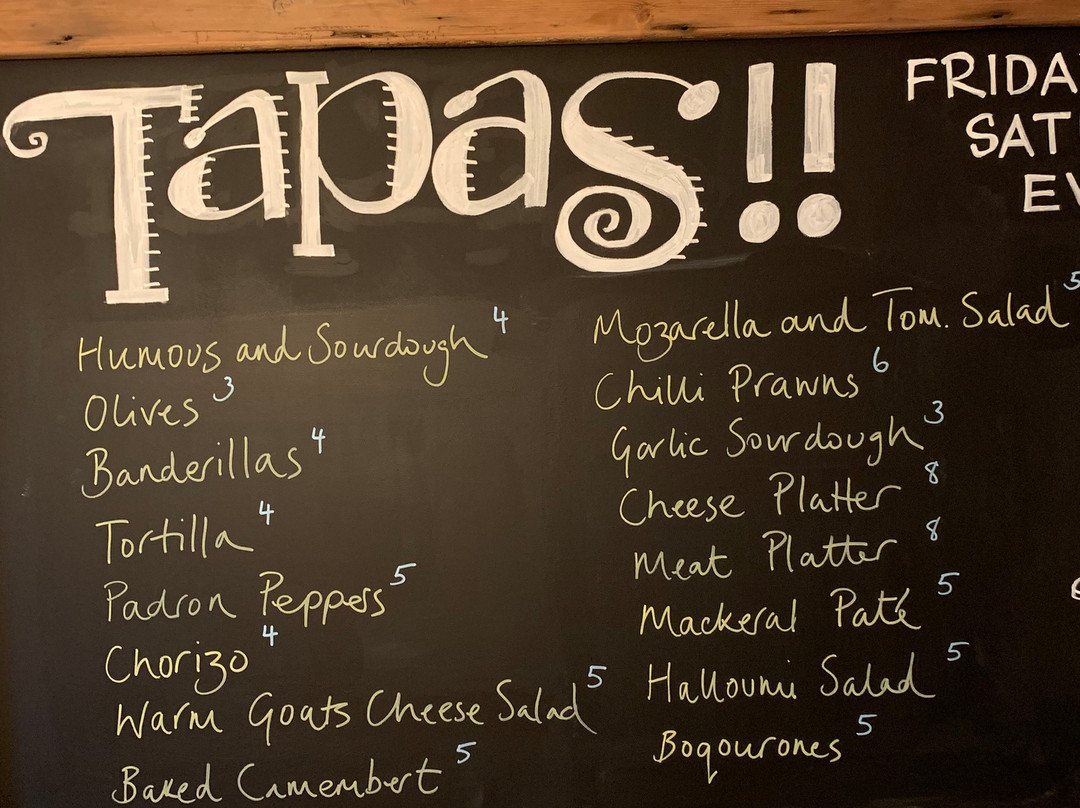 Tapas!!
FRIDA
SAT
EV
Humous and Sourdough 4
Olives 3
Banderillas 4
Tortilla 4
Padron Peppers 5
Chorizo 4
Warm Goats Cheese Salad 5
Baked Camembert 5
Mozarella and Tom. Salad 5
Chilli Prawns 6
Garlic Sourdough 3
Cheese Platter 8
Meat Platter 8
Mackeral Paté 5
Halloumi Salad 5
Boqourones 5